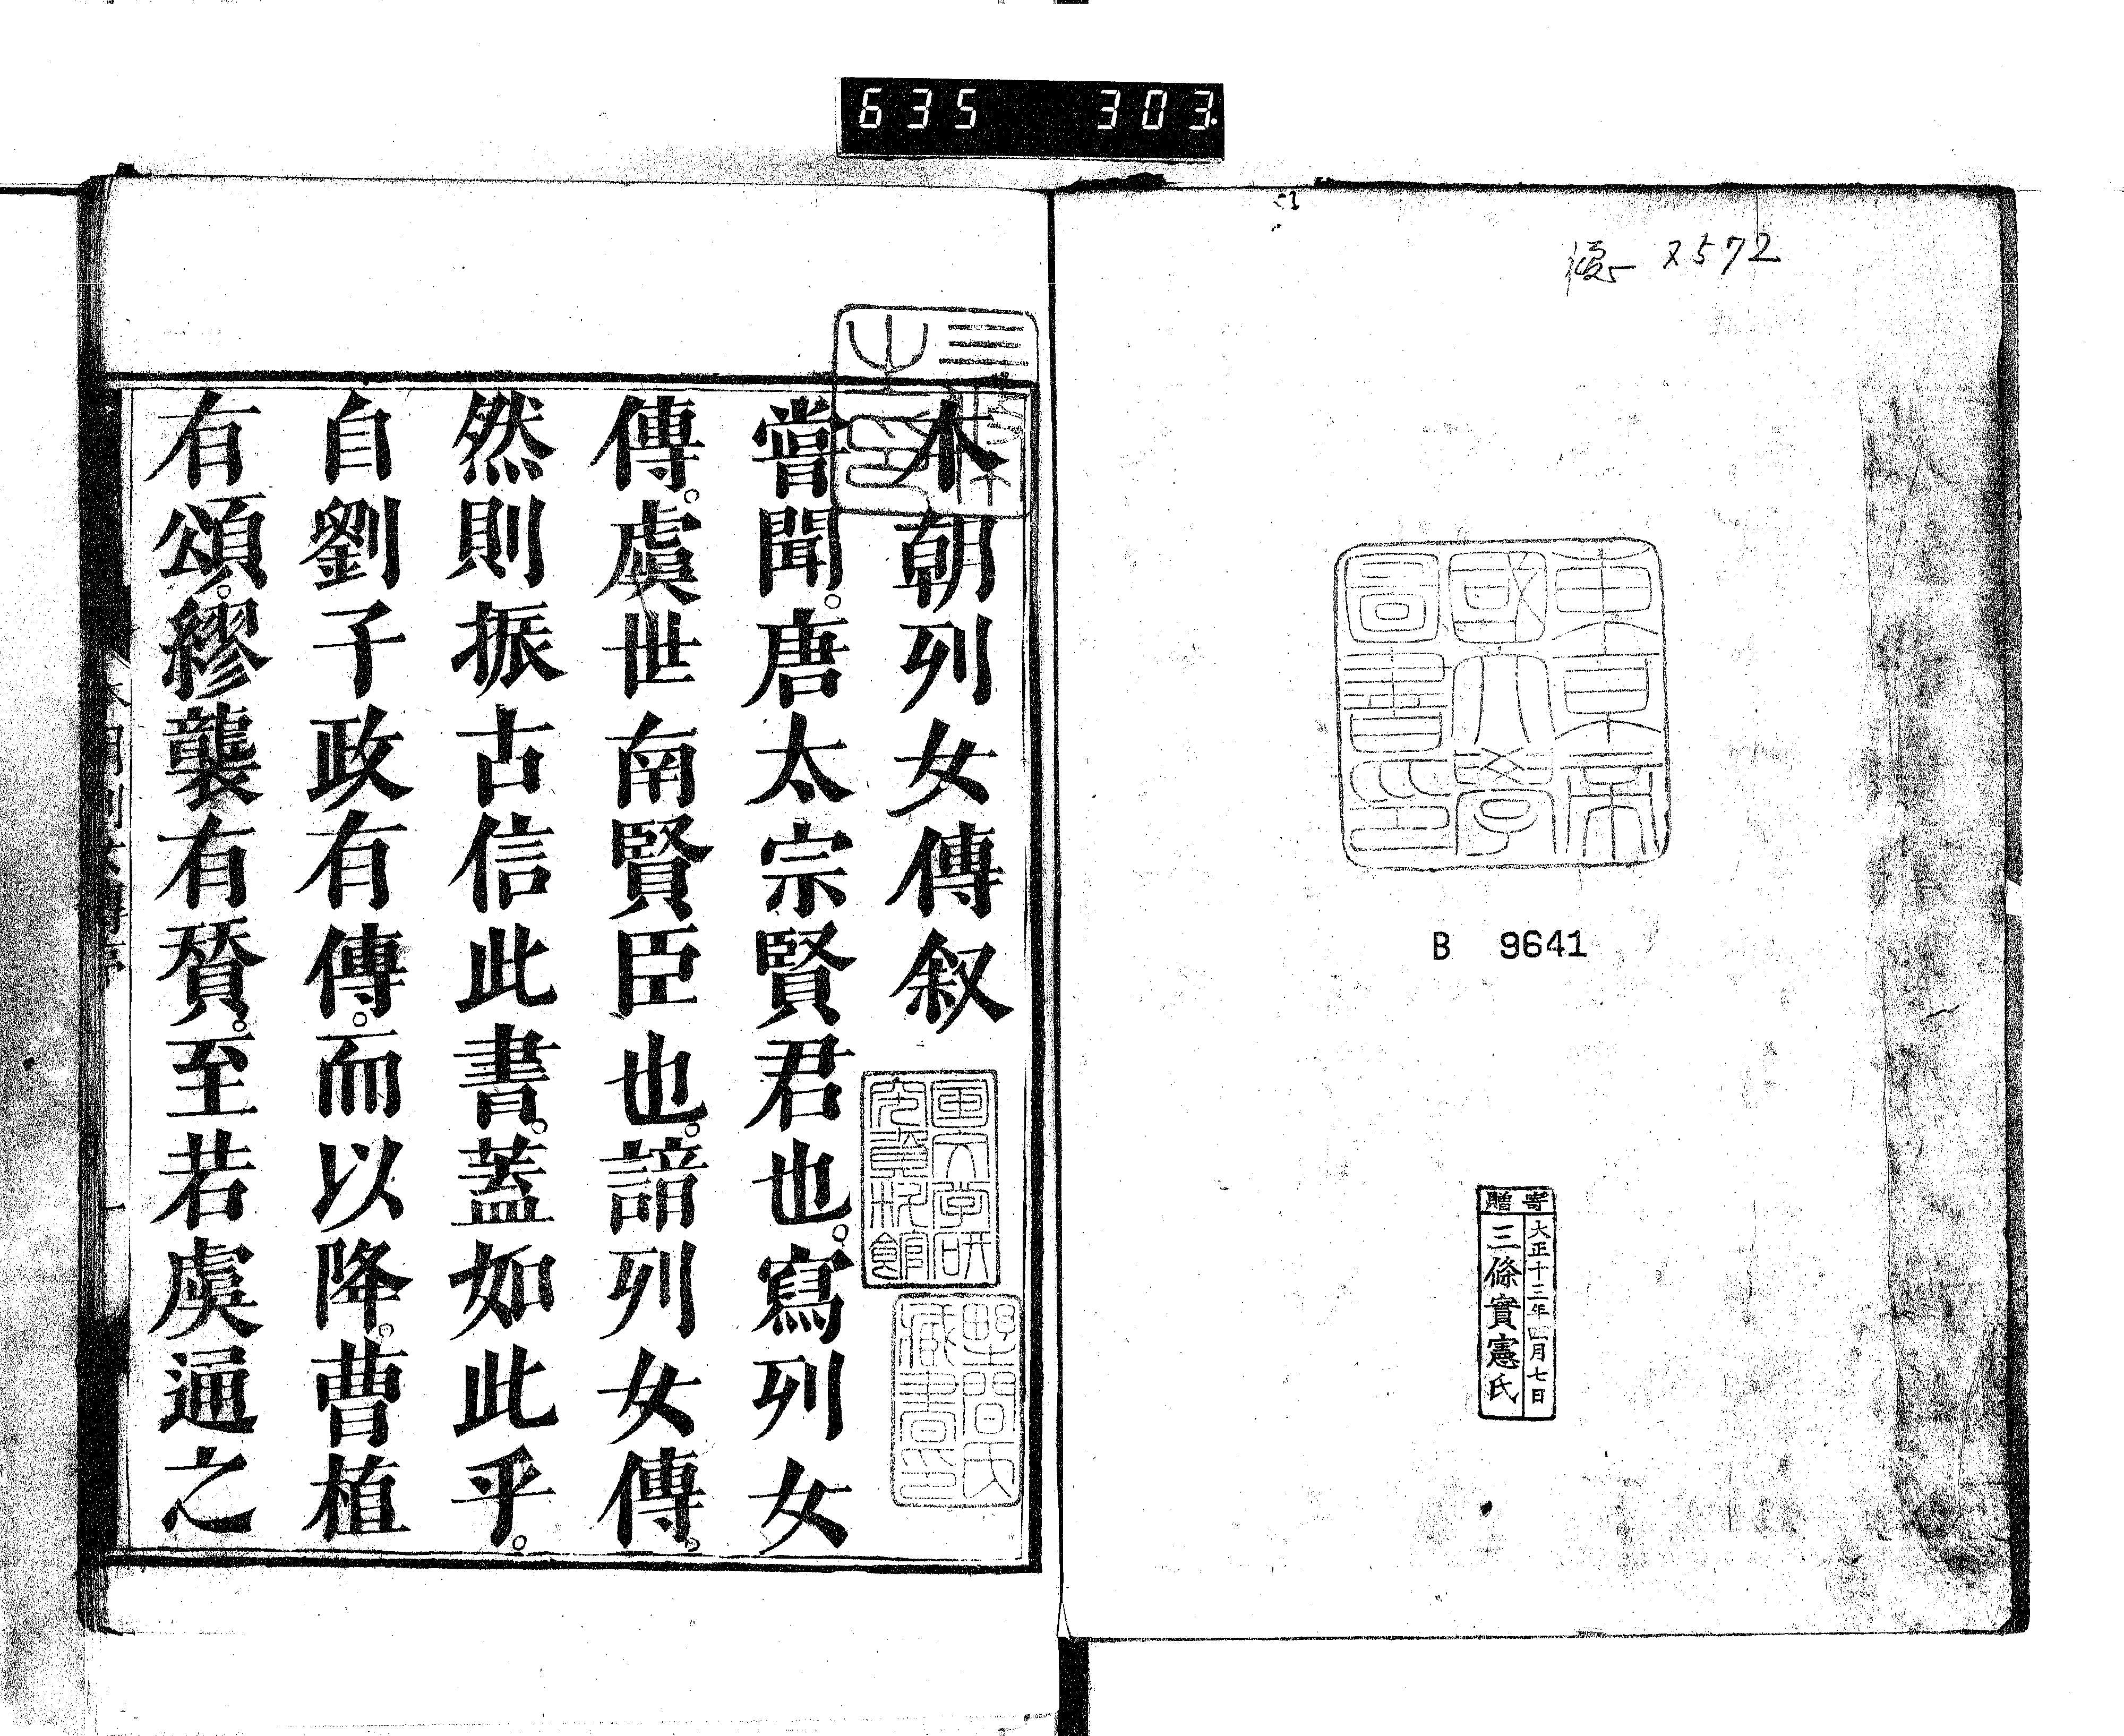 635 303
X572
東京帝
國大學
圖書印
B 9641
寄贈
大正十三年 月七日
三條實憲氏
本朝列女傳叙
嘗聞。唐太宗賢君也。寫列女
傳。虞世南賢臣也。諳列女傳。
然則振古信此書。蓋如此乎。
自劉子政有傳。而以降。曹植
有頌。繆襲有賛。至若虞通之
國文学研
究資料館
野間氏
藏書印